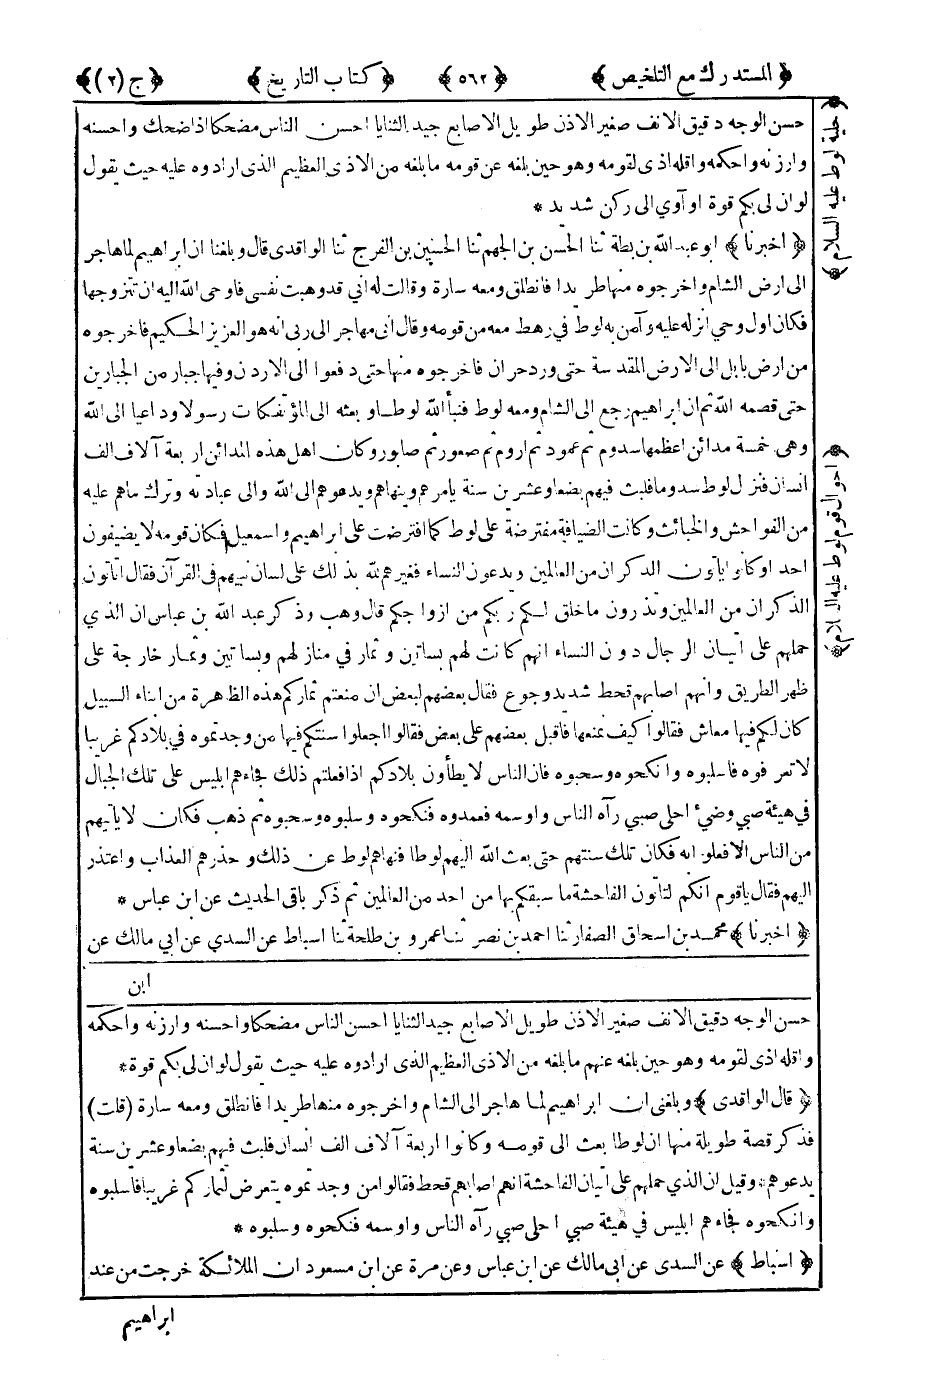 ﴿ المستدرك مع التلخيص ﴾ ﴿ ٥٦٢ ﴾ ﴿ كتاب التاريخ ﴾ ﴿ ج (٢) ﴾
حسن الوجه دقيق الانف صغير الاذن طويل الاصابع جيد الثنايا احسن الناس مضحكا اذا ضحك واحسنه
وارزنه واحكمه واقله اذى لقومه وهو حين بلغه عن قومه ما بلغه من الاذى العظيم الذى ارادوه عليه حيث يقول
لو ان لى بكم قوة او آوي الى ركن شديد *
﴿ اخبرنا ﴾ ابو عبد الله بن بطة ثنا الحسن بن الجهم ثنا الحسين بن الفرج ثنا الواقدى قال وبلغنا ان ابراهيم لما هاجر
الى ارض الشام واخرجوه منها طريدا فانطلق ومعه سارة وقالت له انى قد وهبت نفسى فاوحى الله اليه ان تتزوجها
فكان اول وحي انزله عليه وآمن به لوط في رهط معه من قومه وقال انى مهاجر الى ربى انه هو العزيز الحكيم فاخرجوه
من ارض بابل الى الارض المقدسة حتى ورد حران فاخرجوه منها حتى دفعوا الى الاردن وفيها جبار من الجبارين
حتى قصمه الله ثم ان ابراهيم رجع الى الشام ومعه لوط فنبأ الله لوطا وبعثه الى المؤتفكات رسولا وداعيا الى الله
وهى خمسة مدائن اعظمها سدوم ثم عمود ثم اروم ثم صعور ثم صابور وكان اهل هذه المدائن اربعة آلاف الف
انسان فنزل لوط سدوما فلبث فيهم بضعا وعشرين سنة يامرهم وينهاهم ويدعوهم الى الله والى عبادته وترك ماهم عليه
من الفواحش والخبائث وكانت الضيافة مفترضة على لوط كما افترضت على ابراهيم واسمعيل فكان قومه لا يضيفون
احدا وكانوا يأتون الذكران من العالمين ويدعون النساء فعيرهم الله بذلك على لسان نبيهم فى القرآن فقال اتأتون
الذكران من العالمين وتذرون ماخلق لكم ربكم من ازواجكم قال وهب وذكر عبد الله بن عباس ان الذي
حملهم على اتيان الرجال دون النساء انهم كانت لهم بساتين وثمار في منازلهم وبساتين وثمار خارجة على
ظهر الطريق وانهم اصابهم قحط شديد وجوع فقال بعضهم لبعض ان منعتم ثماركم هذه الظاهرة من ابناء السبيل
كان لكم فيها معاش فقالوا كيف نمنعها فاقبل بعضهم على بعض فقالوا اجعلوا سنتكم فيها من وجدتموه في بلادكم غريبا
لا تعرفوه فاسلبوه وانكحوه وسحبوه فان الناس لا يطأون بلادكم اذا فعلتم ذلك فجاءهم ابليس على تلك الجبال
في هيئة صبي وضيء احلى صبي رآه الناس واوسمه فعمدوه فنكحوه وسلبوه وسحبوه ثم ذهب فكان لا يأتيهم
من الناس الا فعلوا به فكان تلك سنتهم حتى بعث الله اليهم لوطا فنهاهم لوط عن ذلك وحذرهم العذاب واعتذر
اليهم فقال ياقوم انكم لتأتون الفاحشة ما سبقكم بها من احد من العالمين ثم ذكر باقى الحديث عن ابن عباس *
﴿ اخبرنا ﴾ محمد بن اسحاق الصفار ثنا احمد بن نصر ثنا عمرو بن طلحة ثنا اسباط عن السدي عن ابي مالك عن
ابن
حسن الوجه دقيق الانف صغير الاذن طويل الاصابع جيد الثنايا احسن الناس مضحكا واحسنه وارزنه واحكمه
واقله اذى لقومه وهو حين بلغه عنهم ما بلغه من الاذى العظيم الذى ارادوه عليه حيث يقول لو ان لى بكم قوة *
﴿ قال الواقدى ﴾ وبلغنى ان ابراهيم لما هاجر الى الشام واخرجوه منها طريدا فانطلق ومعه سارة (قلت)
فذكر قصة طويلة منها ان لوطا بعث الى قومه وكانوا اربعة آلاف الف انسان فلبث فيهم بضعا وعشرين سنة
يدعوهم* وقيل ان الذي حملهم على اتيان الفاحشة انهم اصابهم قحط فقالوا من وجدتموه يتعرض لثماركم غريبا فاسلبوه
وانكحوه فجاءهم ابليس في هيئة صبي احلى صبي رآه الناس واوسمه فنكحوه وسلبوه *
﴿ اسباط ﴾ عن السدى عن ابى مالك عن ابن عباس وعن مرة عن ابن مسعود ان الملائكة خرجت من عند
ابراهيم
﴿ حلية لوط عليه السلام ﴾
﴿ احوال قوم لوط عليه السلام ﴾